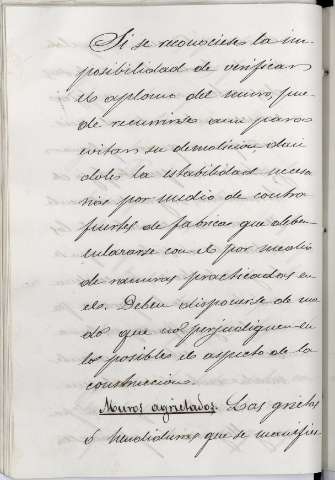 Si se reconociese la im-
posibilidad de verificar
el aplomo del muro, pue-
de recurrirse aun para
evitar su demolicion, dan
doles la estabilidad necesa
rias por medio de contra
fuertes de fabrica que deben
enlazarse con el por medio
de ranuras practicadas en
el. Deben disponerse de mo
do que no perjudiquen en
lo posible el aspecto de la
construccion.
Muros agrietados. Las grietas
ó hendiduras que se manifies